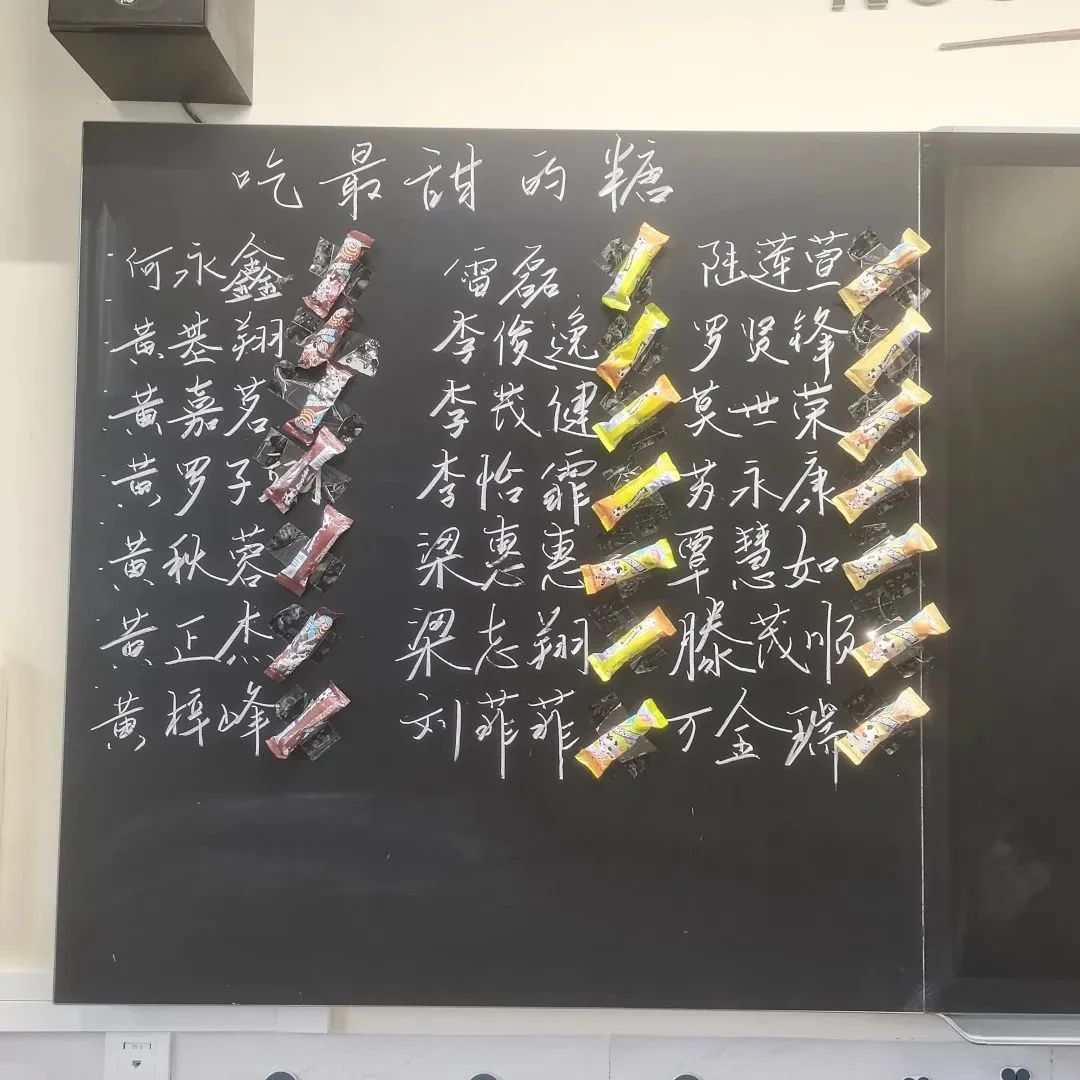 吃最甜的糖
何永鑫 雷磊 陆莲萱
黄基翔 李俊逸 罗贤锋
黄嘉茗 李茂健 莫世荣
黄罗子 李怡霏 苏永康
黄秋蓉 梁惠惠 覃慧如
黄正杰 梁志翔 滕茂顺
黄梓峰 刘菲菲 万金瑞